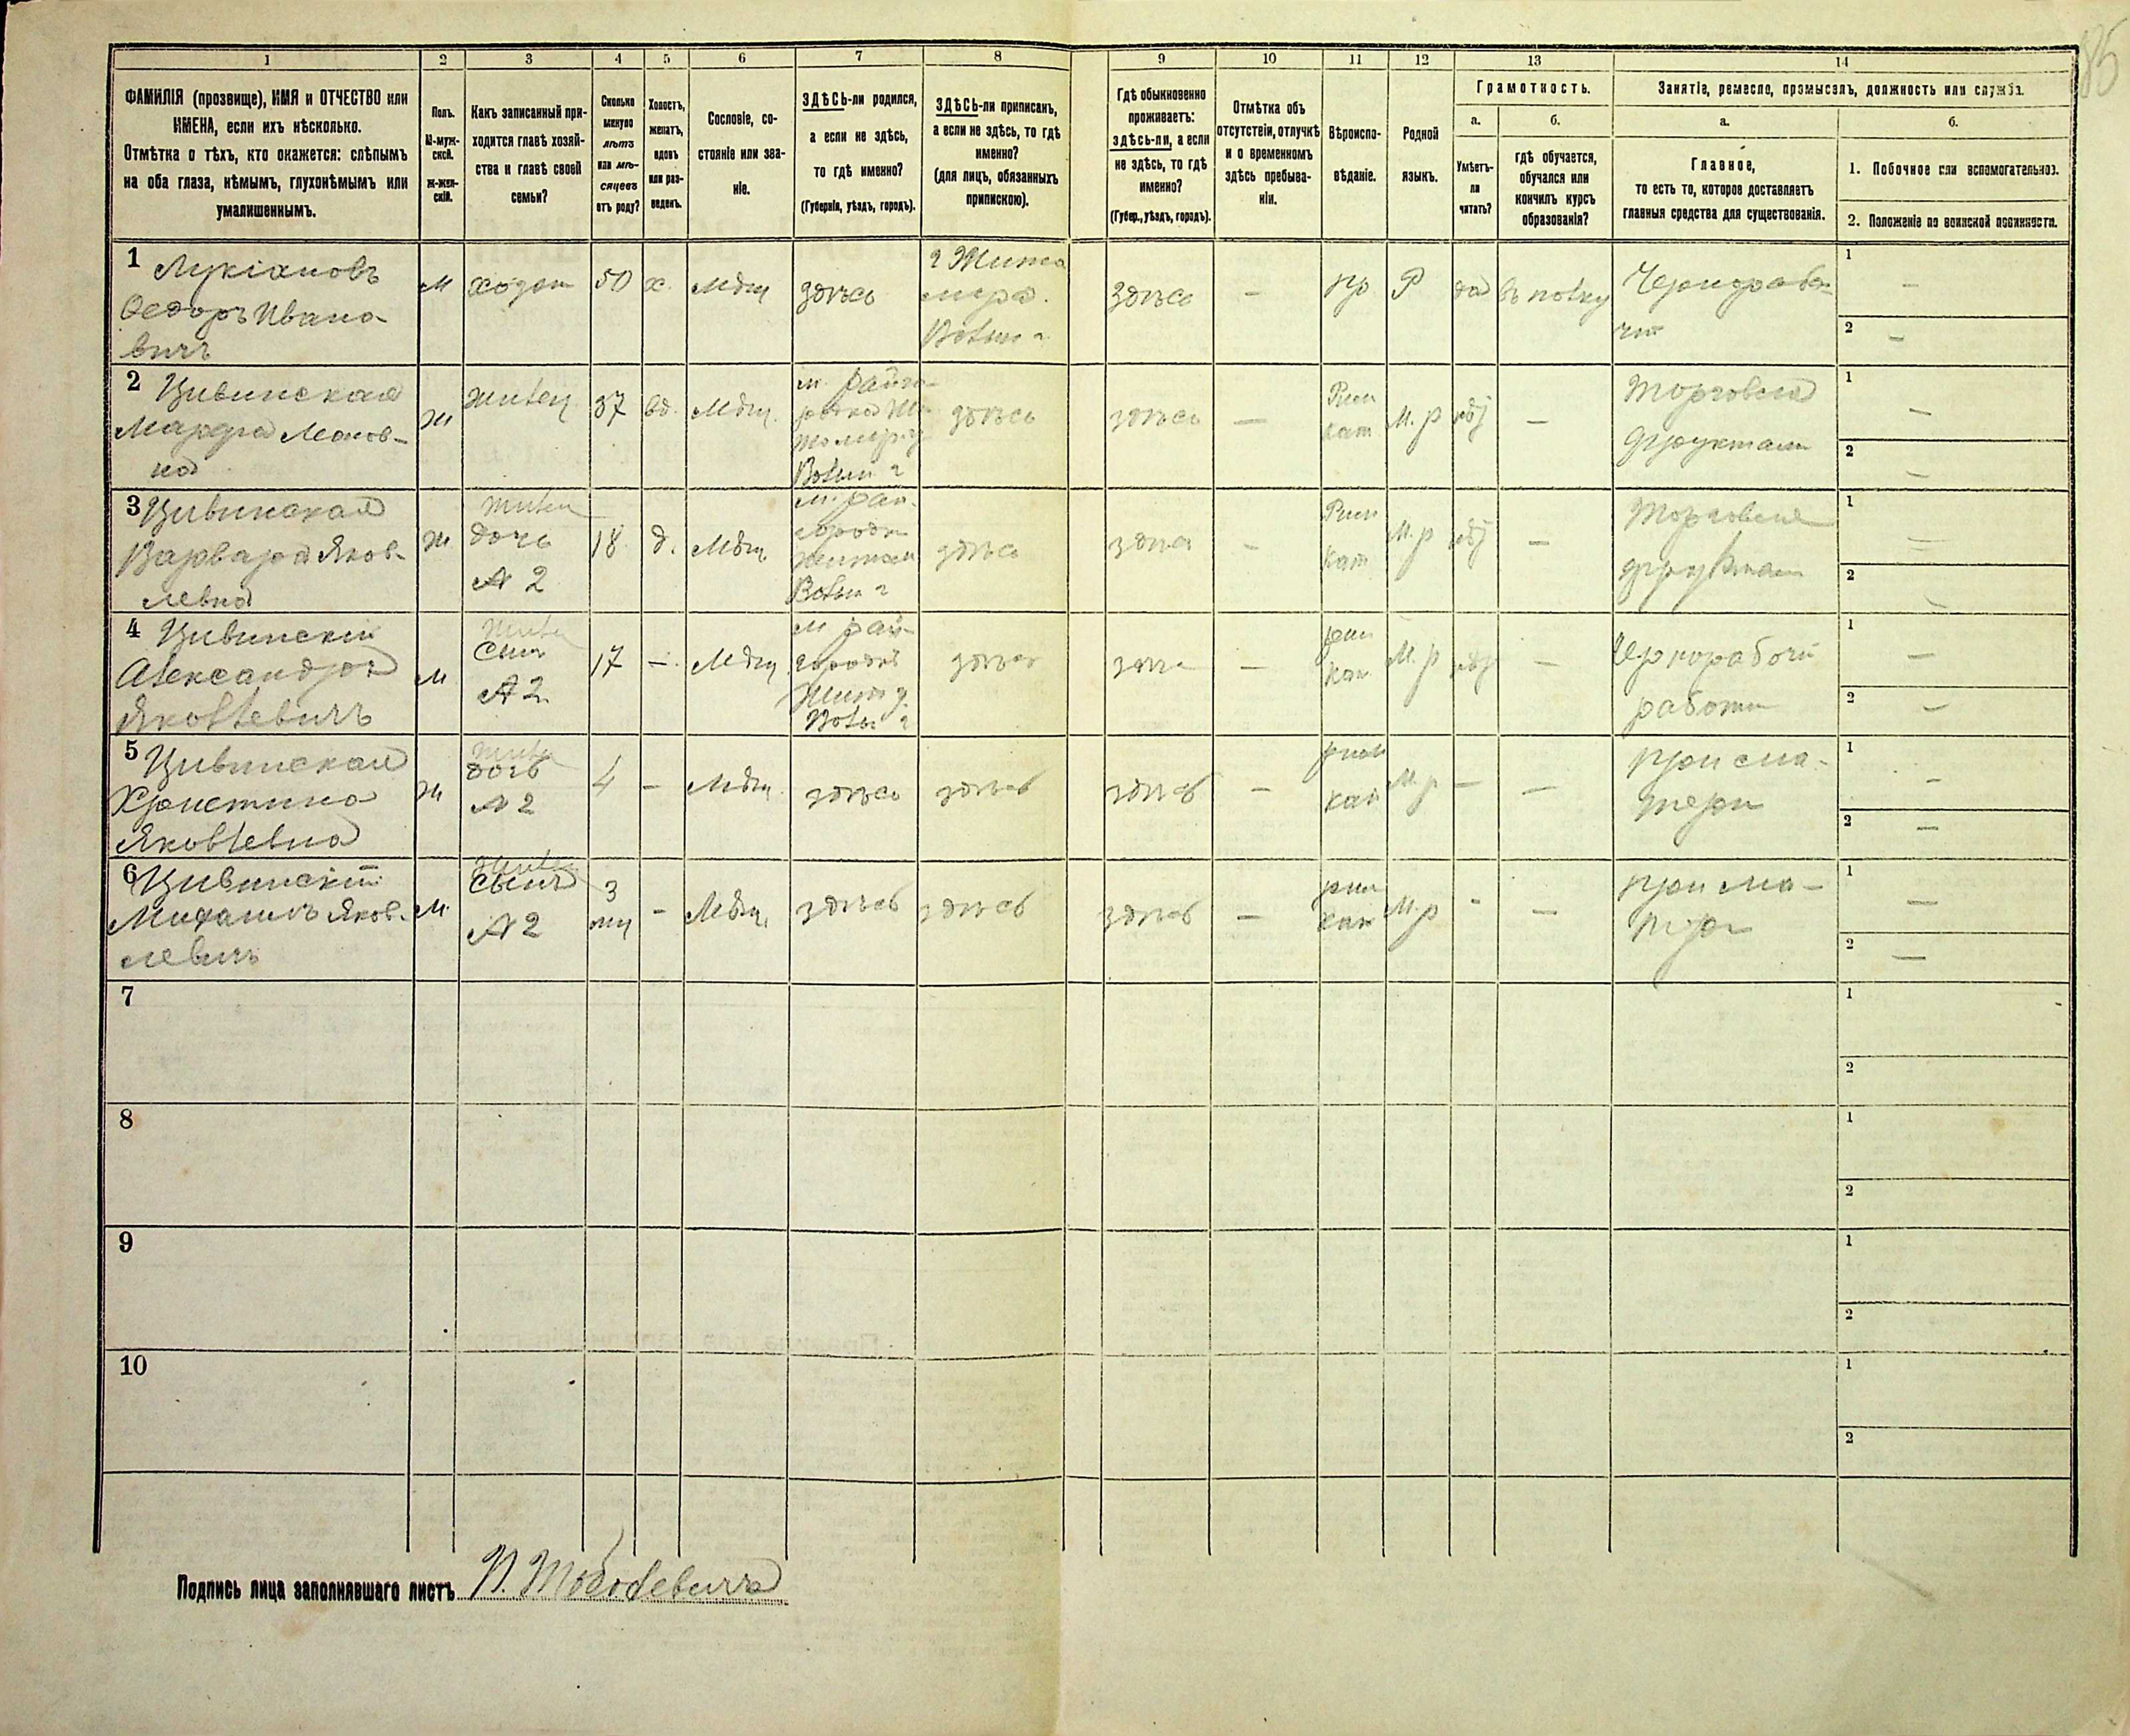 85
1 2 3 4 5 6 7 8 9 10 11 12 13 14
ФАМИЛІЯ (прозвище), ИМЯ и ОТЧЕСТВО или
ИМЕНА, если ихъ нѣсколько.
Отмѣтка о тѣхъ, кто окажется: слѣпымъ
на оба глаза, нѣмымъ, глухонѣмымъ или
умалишеннымъ.
Полъ.
М-муж-
ской.
Ж-жен-
скій.
Какъ записанный при-
ходится главѣ хозяй-
ства и главѣ своей
семьи?
Сколько
минуло
лѣтъ
или мѣ-
сяцевъ
отъ роду?
Холостъ,
женатъ,
вдовъ
или раз-
веденъ.
Сословіе, со-
стояніе или зва-
ніе.
ЗДѢСЬ-ли родился,
а если не здѣсь,
то гдѣ именно?
(Губернія, уѣздъ, городъ).
ЗДѢСЬ-ли приписанъ,
а если не здѣсь, то гдѣ
именно?
(для лицъ, обязанныхъ
припискою).
Гдѣ обыкновенно
проживаетъ:
здѣсь-ли, а если
не здѣсь, то гдѣ
именно?
(Губер., уѣздъ, городъ).
Отмѣтка объ
отсутствіи, отлучкѣ
и о временномъ
здѣсь пребыва-
ніи.
Вѣроиспо-
вѣданіе.
Родной
языкъ.
Грамотность.
а.
Умѣетъ-
ли
читать?
б.
гдѣ обучается,
обучался или
кончилъ курсъ
образованія?
Занятіе, ремесло, промыселъ, должность или служба.
а.
Главное,
то есть то, которое доставляетъ
главныя средства для существованія.
б.
1. Побочное или вспомогательное.
2. Положеніе по воинской повинности.
1 Лукіановъ
Ѳедоръ Ивано-
вичъ
М
50
х.
Мѣщ
здѣсь
г Жито
мира.
Волын г
здѣсь
—
пр
Р
да
въ полку
1 —
2 —
2 Цивинская
Марфа
Ж
жилец
37
вд.
Мѣщ.
Волын г
здѣсь
здѣсь
—
Рим
кат
М. р
—
Торговля
фруктами
1 —
2 —
3 Цивинская
Варвара Яков-
левна
Ж
дочь
№ 2
18
д.
Мѣщ
Волын г
здѣсь
здѣсь
—
Рим
кат
М. р
—
Торговля
1
2
4 Цивинскій
Александръ
Яковлевичъ
М
сын
№ 2
17
—
Мѣщ
м. рай-
городкѣ
Волы г
здѣсь
—
рим
кат
М. р
—
Чернорабочій
1 —
2 —
5 Цивинская
Христина
Яковлевна
Ж
дочь
№ 2
4
—
Мѣщ
здѣсь
здѣсь
здѣсь
—
рим
кат
М. р
—
—
при ма-
тери
1 —
2 —
6 Цивинскій
Михаилъ Яков-
левичъ
М
сынъ
№ 2
3
мц
—
Мѣщ.
здѣсь
здѣсь
здѣсь
—
рим
кат
М. р
-
—
при ма-
тери
1 —
2 —
7
1
2
8
1
2
9
1
2
10
1
2
Подпись лица заполнявшаго листъ